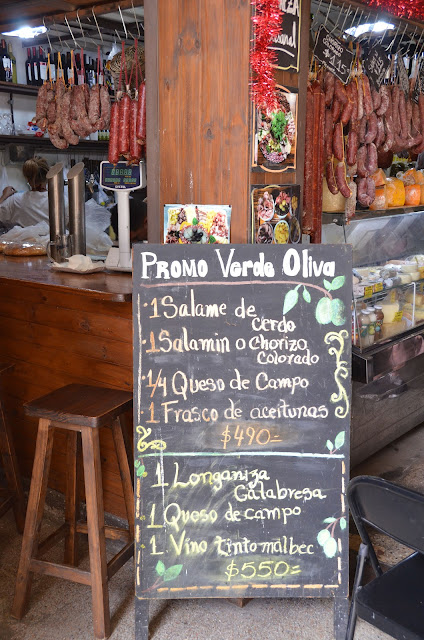 Promo Verde Oliva
1 Salame de
Cerdo
1 Salamin o Chorizo
Colorado
1/4 Queso de Campo
1 Frasco de aceitunas
$490=
1 Longaniza
Calabresa
1 Queso de campo
1 Vino tinto malbec
$550=